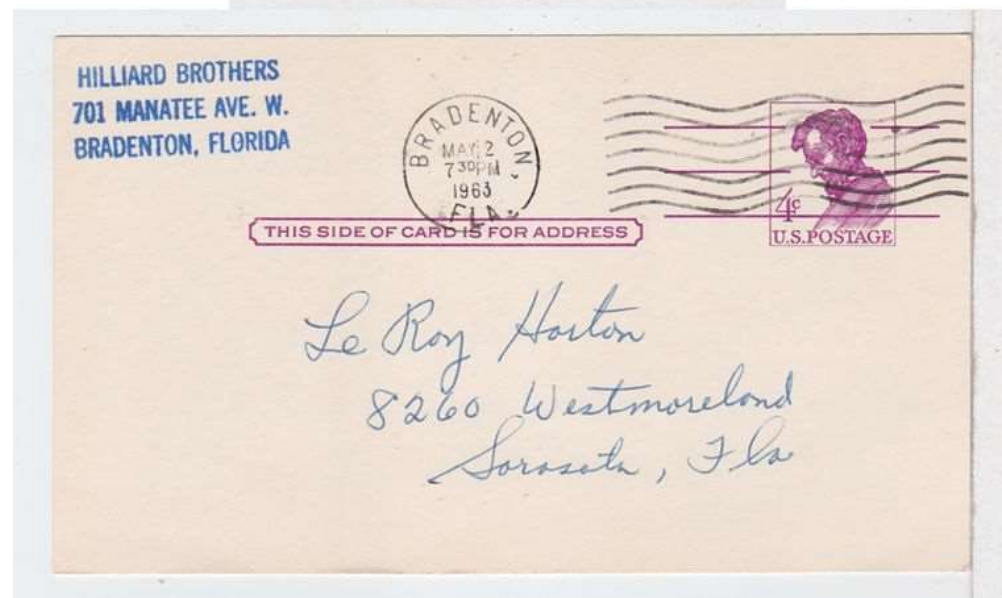 HILLIARD BROTHERS
701 MANATEE AVE. W.
BRADENTON, FLORIDA
BRADENTON,
MAY 2
7 30 PM
1963
FLA.
4c
U.S. POSTAGE
THIS SIDE OF CARD IS FOR ADDRESS
Le Roy Horton
8260 Westmoreland
Sarasota, Fla